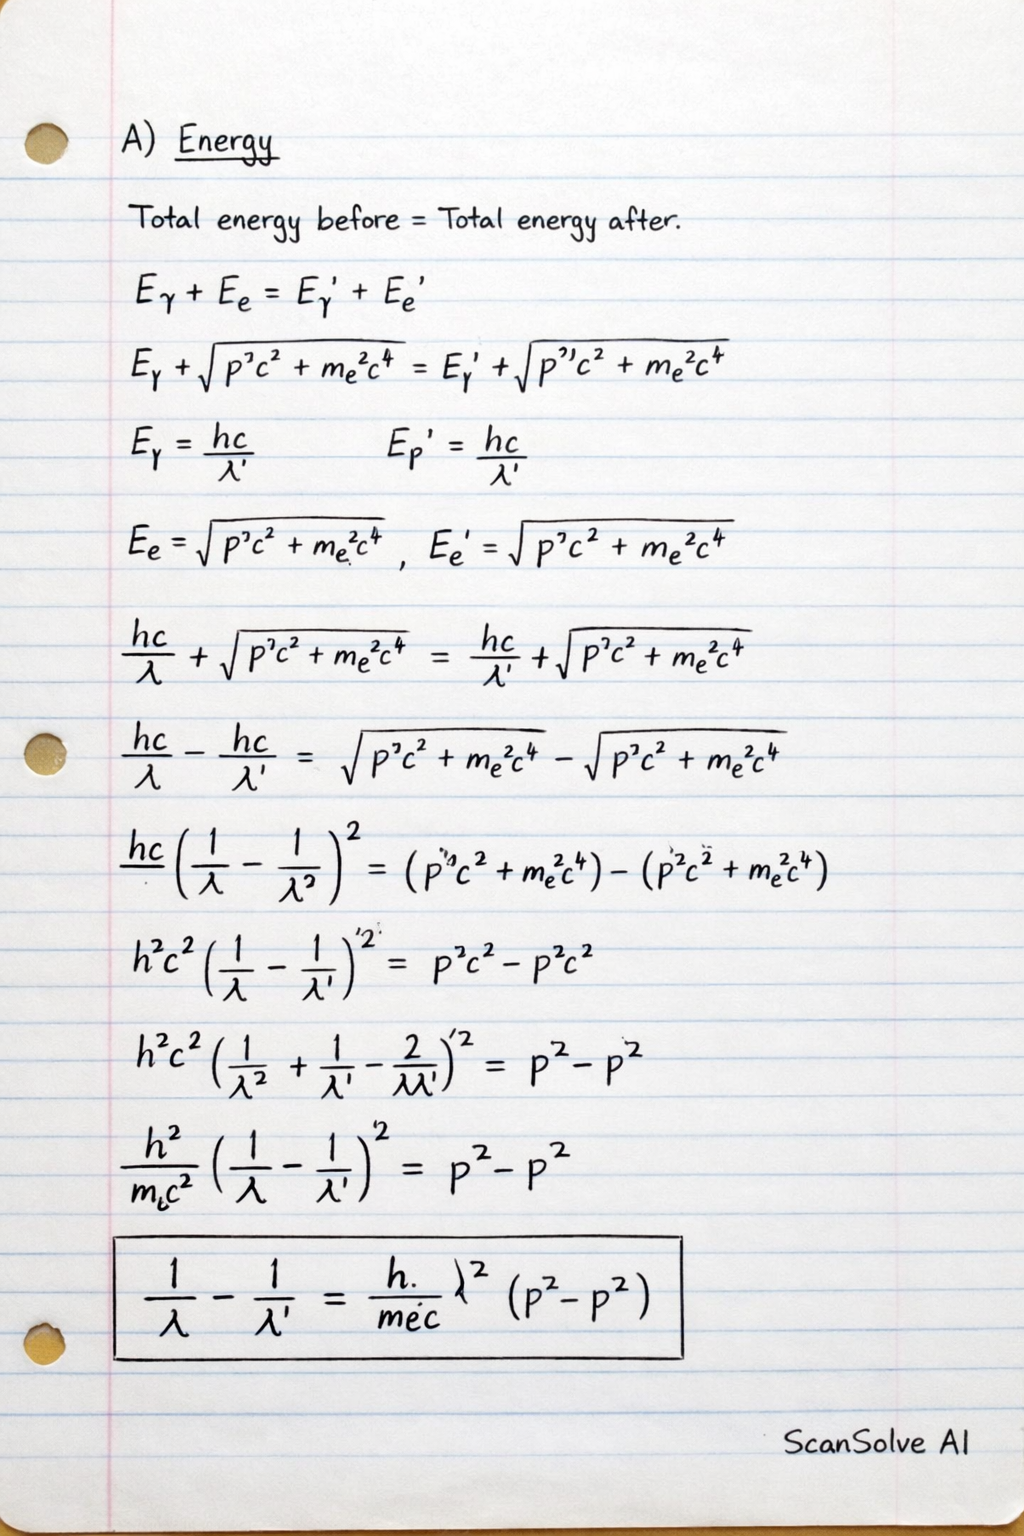 A) Energy
Total energy before = Total energy after.
Eγ + Ee = Eγ' + Ee'
Eγ + √(p²c² + me²c⁴) = Eγ' + √(p²'c² + me²c⁴)
Eγ = hc/λ'    Ep' = hc/λ'
Ee = √(p²c² + me²c⁴) , Ee' = √(p²c² + me²c⁴)
hc/λ + √(p²c² + me²c⁴) = hc/λ' + √(p²c² + me²c⁴)
hc/λ − hc/λ' = √(p²c² + me²c⁴) − √(p²c² + me²c⁴)
hc (1/λ − 1/λ²)² = (p²c² + me²c⁴) − (p²c² + me²c⁴)
h²c² (1/λ − 1/λ')'² = p²c² − p²c²
h²c² (1/λ² + 1/λ' − 2/λλ')'² = p² − p²
h²/mc² (1/λ − 1/λ')'² = p² − p²
1/λ − 1/λ' = h./mec λ² (p² − p²)
ScanSolve AI